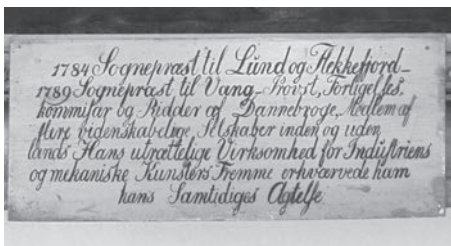 1784 Sognepræst til Lund og Flekkefjord_
1789 Sognepræst til Vang_ Provst, Forligelses_
kommisær og Ridder af Dannebroge, Medlem af
flere videnskabelige Selskaber inden og uden
lands Hans utrættelige Virksomhed for Industriens
og mekaniske Kunsters Fremme erhværvede ham
hans Samtidiges Agtelse.